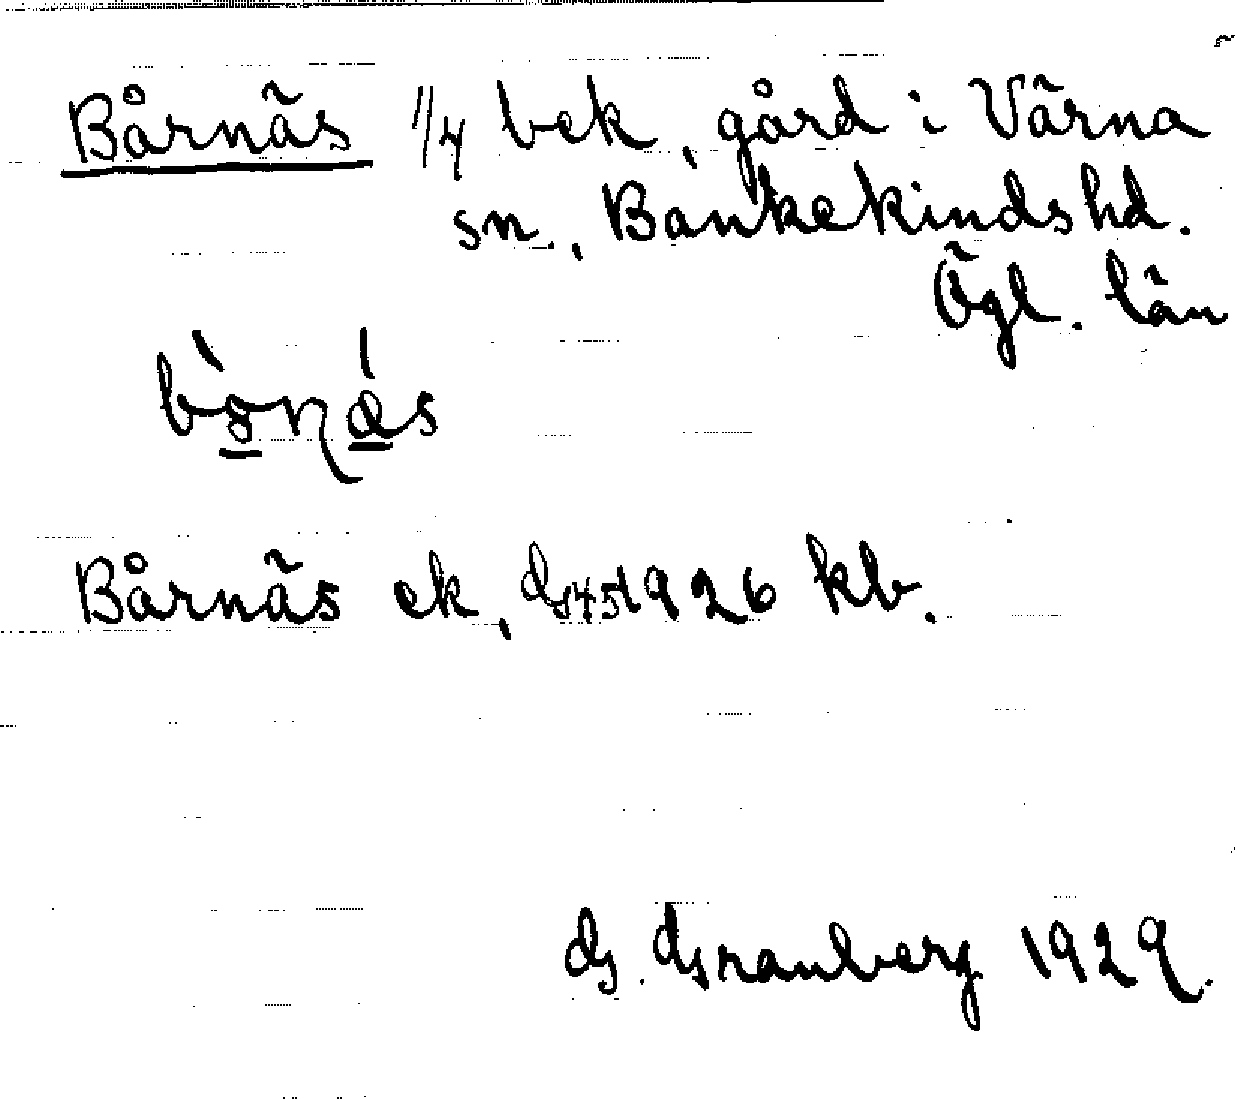 Bårnäs 1/4 bek, gård i Värna
sn., Bankekinds hd.
Ögl. län
Bårnäs ek, G451926 kb.
G. Granberg 1929.